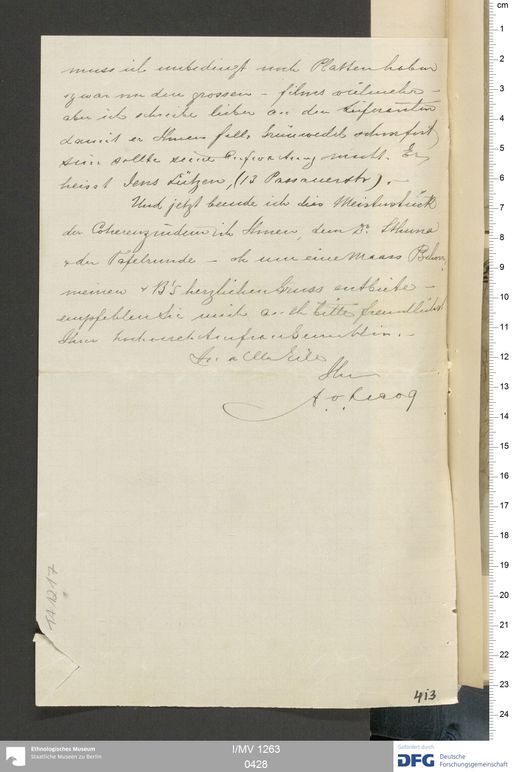 muss ich unbedingt noch Platten haben
zwar von den grossen – films vielmehr –
aber ich schreibe lieber an den Lieferanten
damit er Ihnen falls Grünwedel schimpft
seine Aufwartung macht. Er
heisst Jens Lützen, (13 Passauerstr). –
Und jetzt beende ich dies Meisterstück
der Coherenz indem ich Ihnen, dem Dr
& der Tafelrunde – oh um eine Maass
meinen & B's herzlichen Gruss entbiete –
empfehlen Sie mich auch bitte freundlichst
Ihrer
In aller Eile
Ihr
A. v. Lecoq
1A 1217
413
cm
1
2
3
4
5
6
7
8
9
10
11
12
13
14
15
16
17
18
19
20
21
22
23
24
Ethnologisches Museum
Staatliche Museen zu Berlin
I/MV 1263
0428
Gefördert durch
DFG Deutsche
Forschungsgemeinschaft